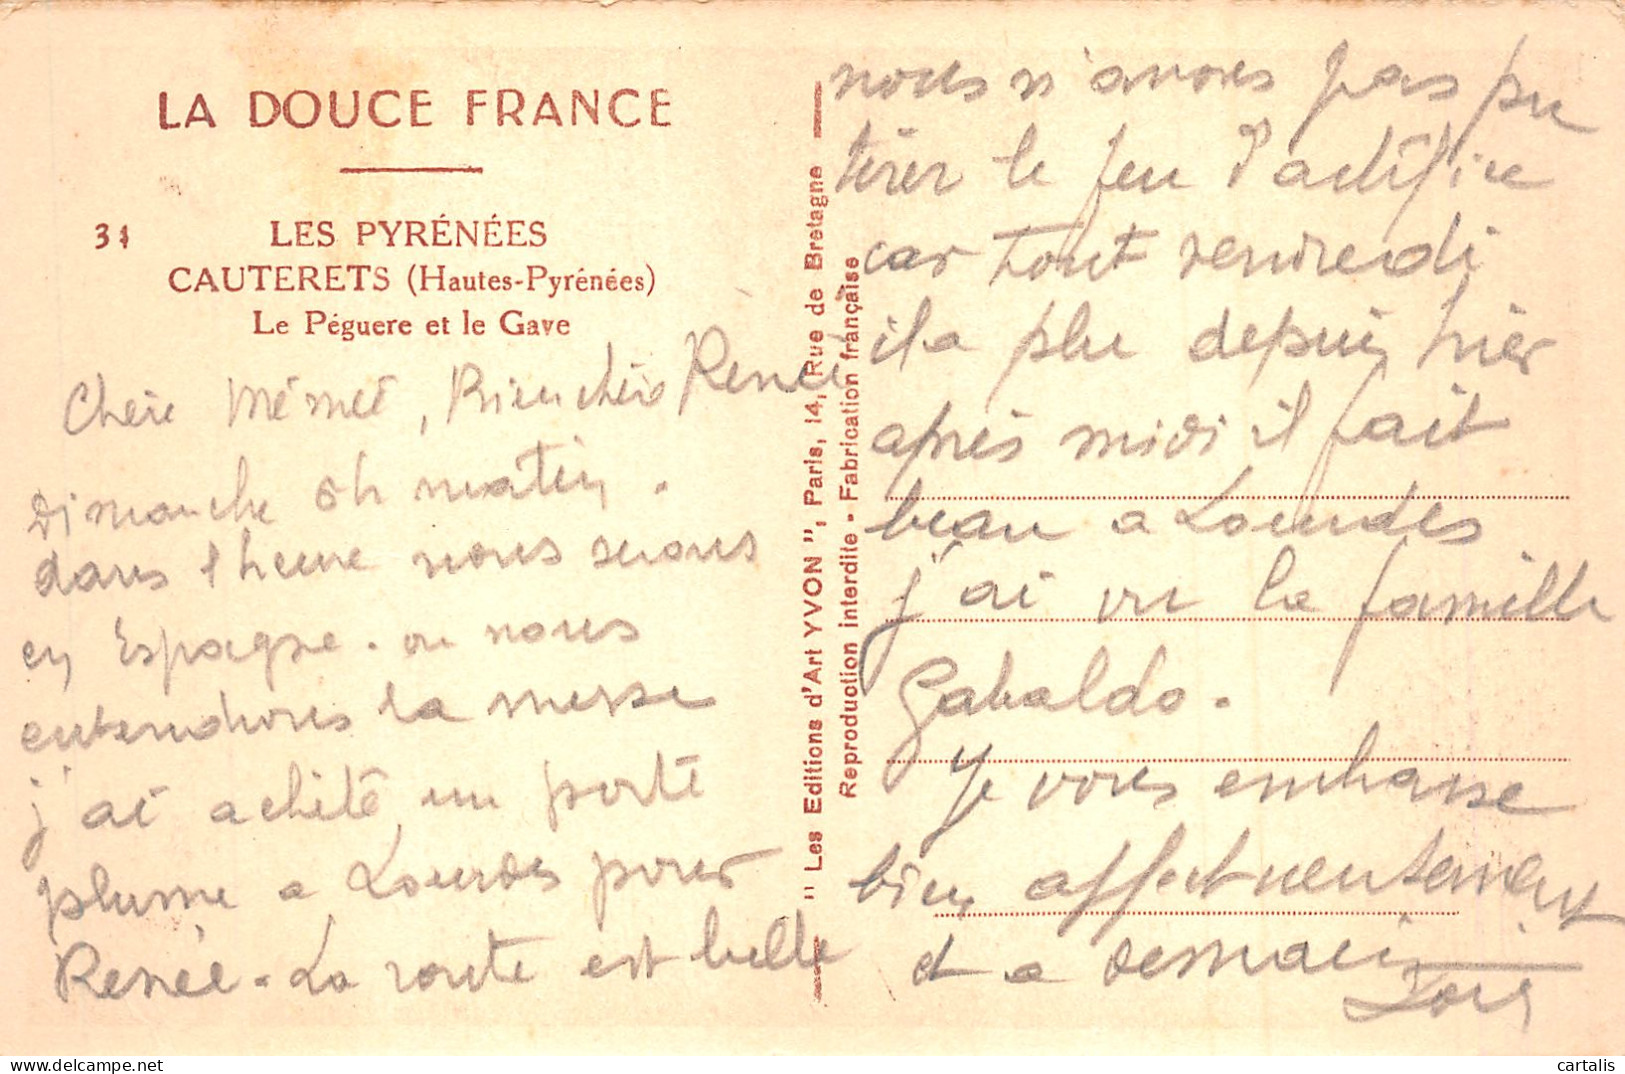 LA DOUCE FRANCE
31
LES PYRÉNÉES
CAUTERETS (Hautes-Pyrénées)
Le Péguere et le Gave
Chère Mémeé, Bien chère Renée
Dimanche 8h matin.
dans l heure nous serons
en Espagne. ou nous
entendrons la messe
j'ai acheté un porte
plume a Lourdes pour
Renée. La route est belle
" Les Editions d'Art YVON ", Paris, 14, Rue de Bretagne
Reproduction interdite - Fabrication française
nous n'avons pas pu
tirer le feu d'artifice
car tout vendredi
il a plu depuis hier
après midi il fait
beau a Lourdes
j'ai vu la famille
Gabaldo.
Je vous embrasse
bien affectueusement
et a demain
cartalis